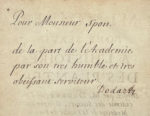 Pour Monsieur Spon.
de la part de l'Academie
par son tres humble et tres
obeissant serviteur
Dodart